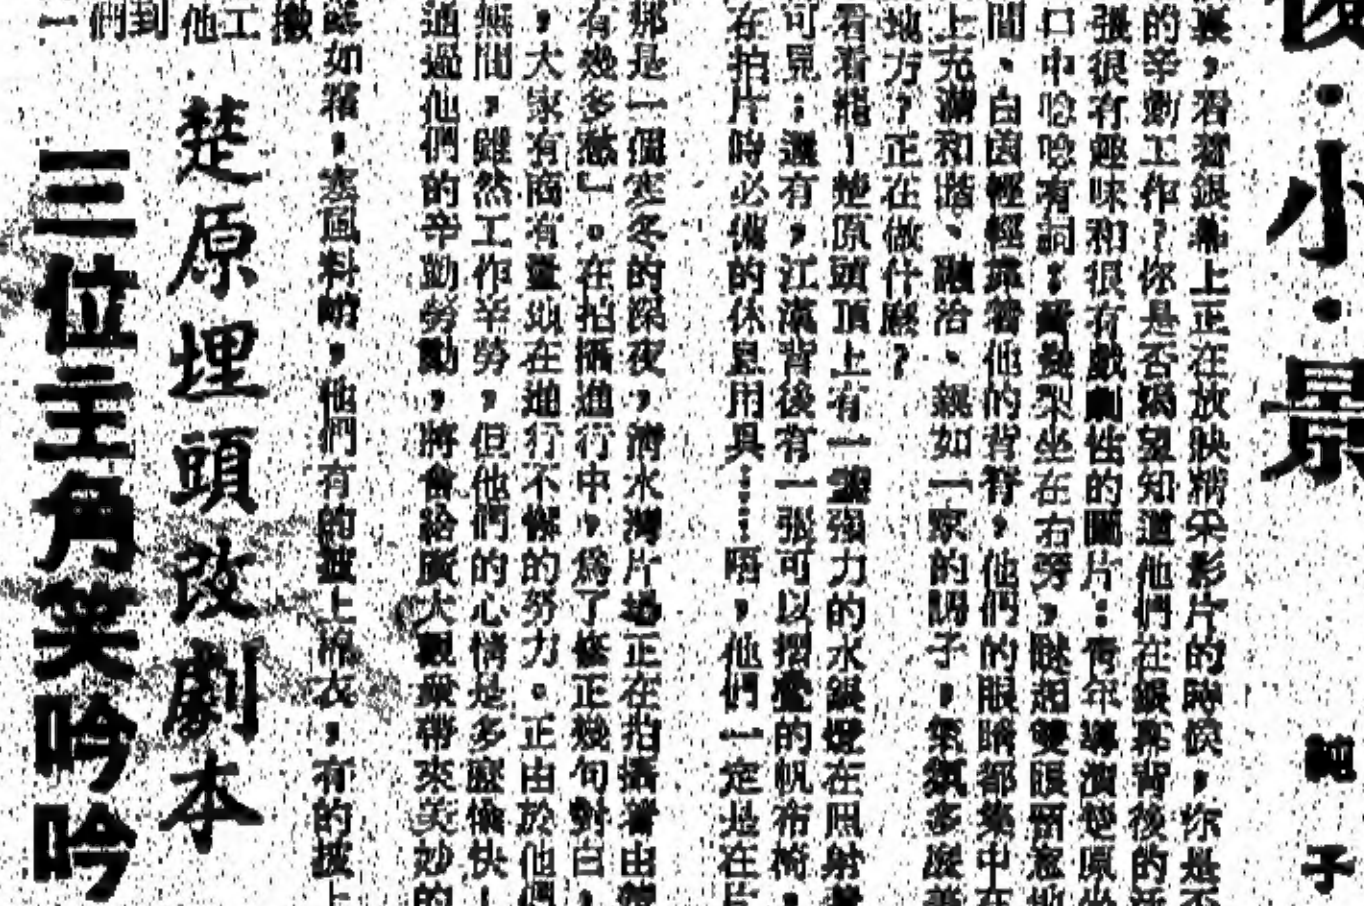 ·小·景
子
裏，看着銀幕上正在放映精采影片的時候，你是否
的辛勤工作？你是否渴望知道他們在銀幕背後的
張很有趣味和很有戲劇性的圖片：青年導演楚原坐
口中唸唸有詞；坐在右旁，瞇起雙眼留意地
間，白茵輕輕靠着他的背脊，他們的眼睛都集中在
上充滿和諧、融洽、親如一家的調子，氣氛多麼
地方？正在做什麼？
看看罷！楚原頭頂上有一盞強力的水銀燈在照射着
可見；還有，江漢背後有一張可以摺疊的帆布椅，
在拍片時必備的休息用具……唔，他們一定是在片
那是一個寒冬的深夜，清水灣片場正在拍攝着由
有幾多愁」。在拍攝進行中，為了修正幾句對白，
，大家有商有量地在進行不懈的努力。正由於他們
無間，雖然工作辛勞，但他們的心情是多麼愉快！
通過他們的辛勤勞動，將會給廣大觀眾帶來美妙的
如霜，寒風料峭，他們有的披上棉衣，有的披上
楚原埋頭改劇本
三位主角笑吟吟